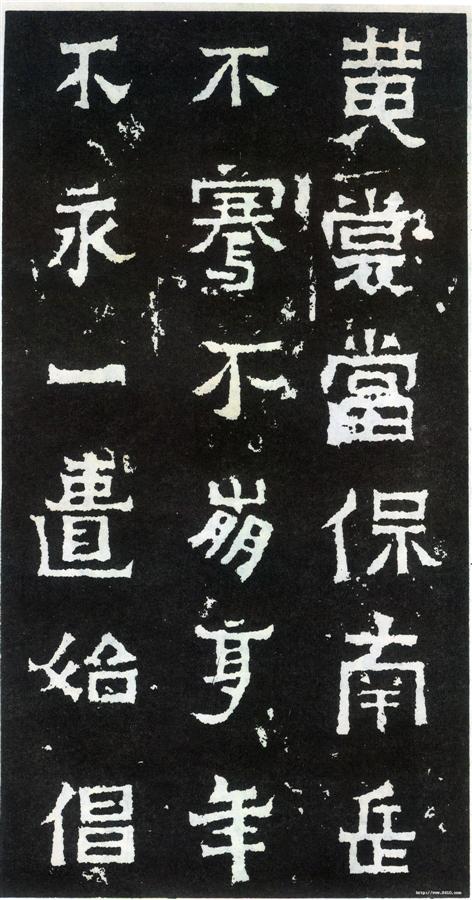 黄裳當保南岳
不騫不崩享年
不永一匱始倡
http://www.9610.com